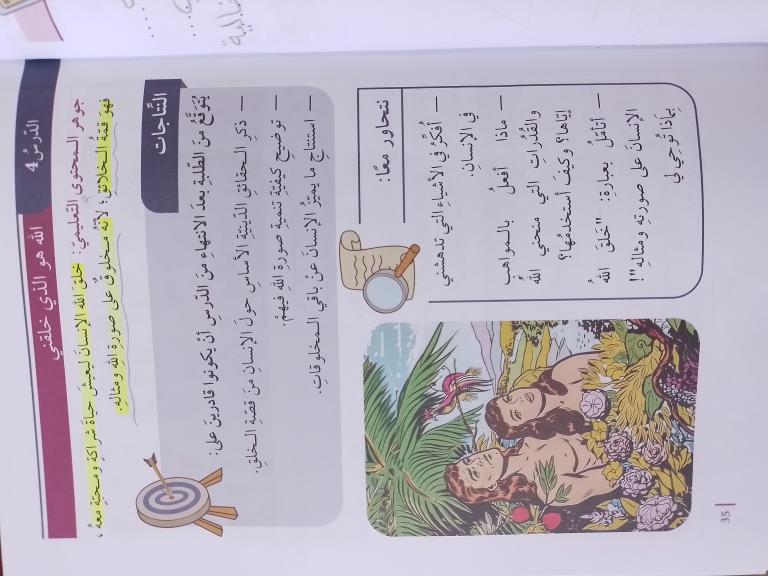 الدّرسُ 4
الله هو الذي خلقني
جوهر المحتوى التّعليميّ: خلقَ الله الإنسانَ ليعيشَ حياةَ شراكةٍ ومحبّةٍ معهُ،
فهو قمّةُ الخلائقِ؛ لأنّه مخلوقٌ على صورةِ الله ومثالِه.
النّتاجات
يُتَوقَّعُ منَ الطّلبةِ بعدَ الانتهاءِ منَ الدّرسِ أنْ يكونوا قادرينَ على:
– ذكرِ الحقائقِ الدّينيّةِ الأساسِ حولَ الإنسانِ منَ قصّةِ الخلقِ.
– توضيحِ كيفيّةِ تنميةِ صورةِ الله فيهمْ.
– استنتاجِ ما يميّزُ الإنسانَ عنْ باقي المخلوقاتِ.
نتحاور معًا:
– أُفكّرُ في الأشياءِ التي تدهشني
في الإنسانِ.
– ماذا أفعلُ بالمواهبِ
والقُدُراتِ التي منحَني اللهُ
إيّاها؟ وكيفَ أستخدمُها؟
– أتأمّلُ بعبارةِ: "خَلقَ اللهُ
الإنسانَ على صورتِه ومثالِهِ"!
بماذا تُوحي لي
35